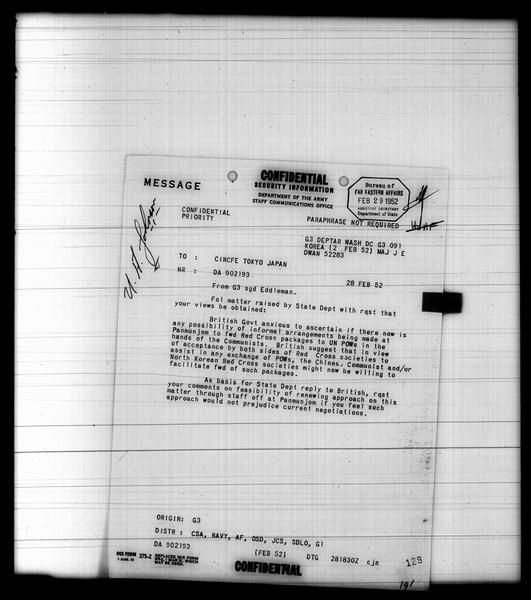 CONFIDENTIAL
SECURITY INFORMATION
MESSAGE
DEPARTMENT OF THE ARMY
STAFF COMMUNICATIONS OFFICE
Bureau of
FAR EASTERN AFFAIRS
FEB 29 1952
ASSISTANT SECRETARY
Department of State
CONFIDENTIAL
PRIORITY
PARAPHRASE NOT REQUIRED
U. A. Johnson
G3 DEPTAR WASH DC G3 091
KOREA (2 FEB 52) MAJ J E
DWAN 52283
TO : CINCFE TOKYO JAPAN
NR : DA 902193
28 FEB 52
From G3 sgd Eddleman.
Fol matter raised by State Dept with rqst that
your views be obtained:
British Govt anxious to ascertain if there now is
any possibility of informal arrangements being made at
Panmunjom to fwd Red Cross packages to UN POWs in the
hands of the Communists. British suggest that in view
of acceptance by both sides of Red Cross societies to
assist in any exchange of POWs, the Chines. Communist and/or
North Korean Red Cross societies might now be willing to
facilitate fwd of such packages.
As basis for State Dept reply to British, rqst
your comments on feasibility of renewing approach on this
matter through staff off at Panmunjom if you feel such
approach would not prejudice current negotiations.
ORIGIN: G3
DISTR : CSA, NAVY, AF, OSD, JCS, SDLO, G1
DA 902193 (FEB 52) DTG 281830Z cjm 129
OCS FORM 375-2 REPLACES OCS FORM
1 AUG. 51
MAY BE USED.
CONFIDENTIAL
191